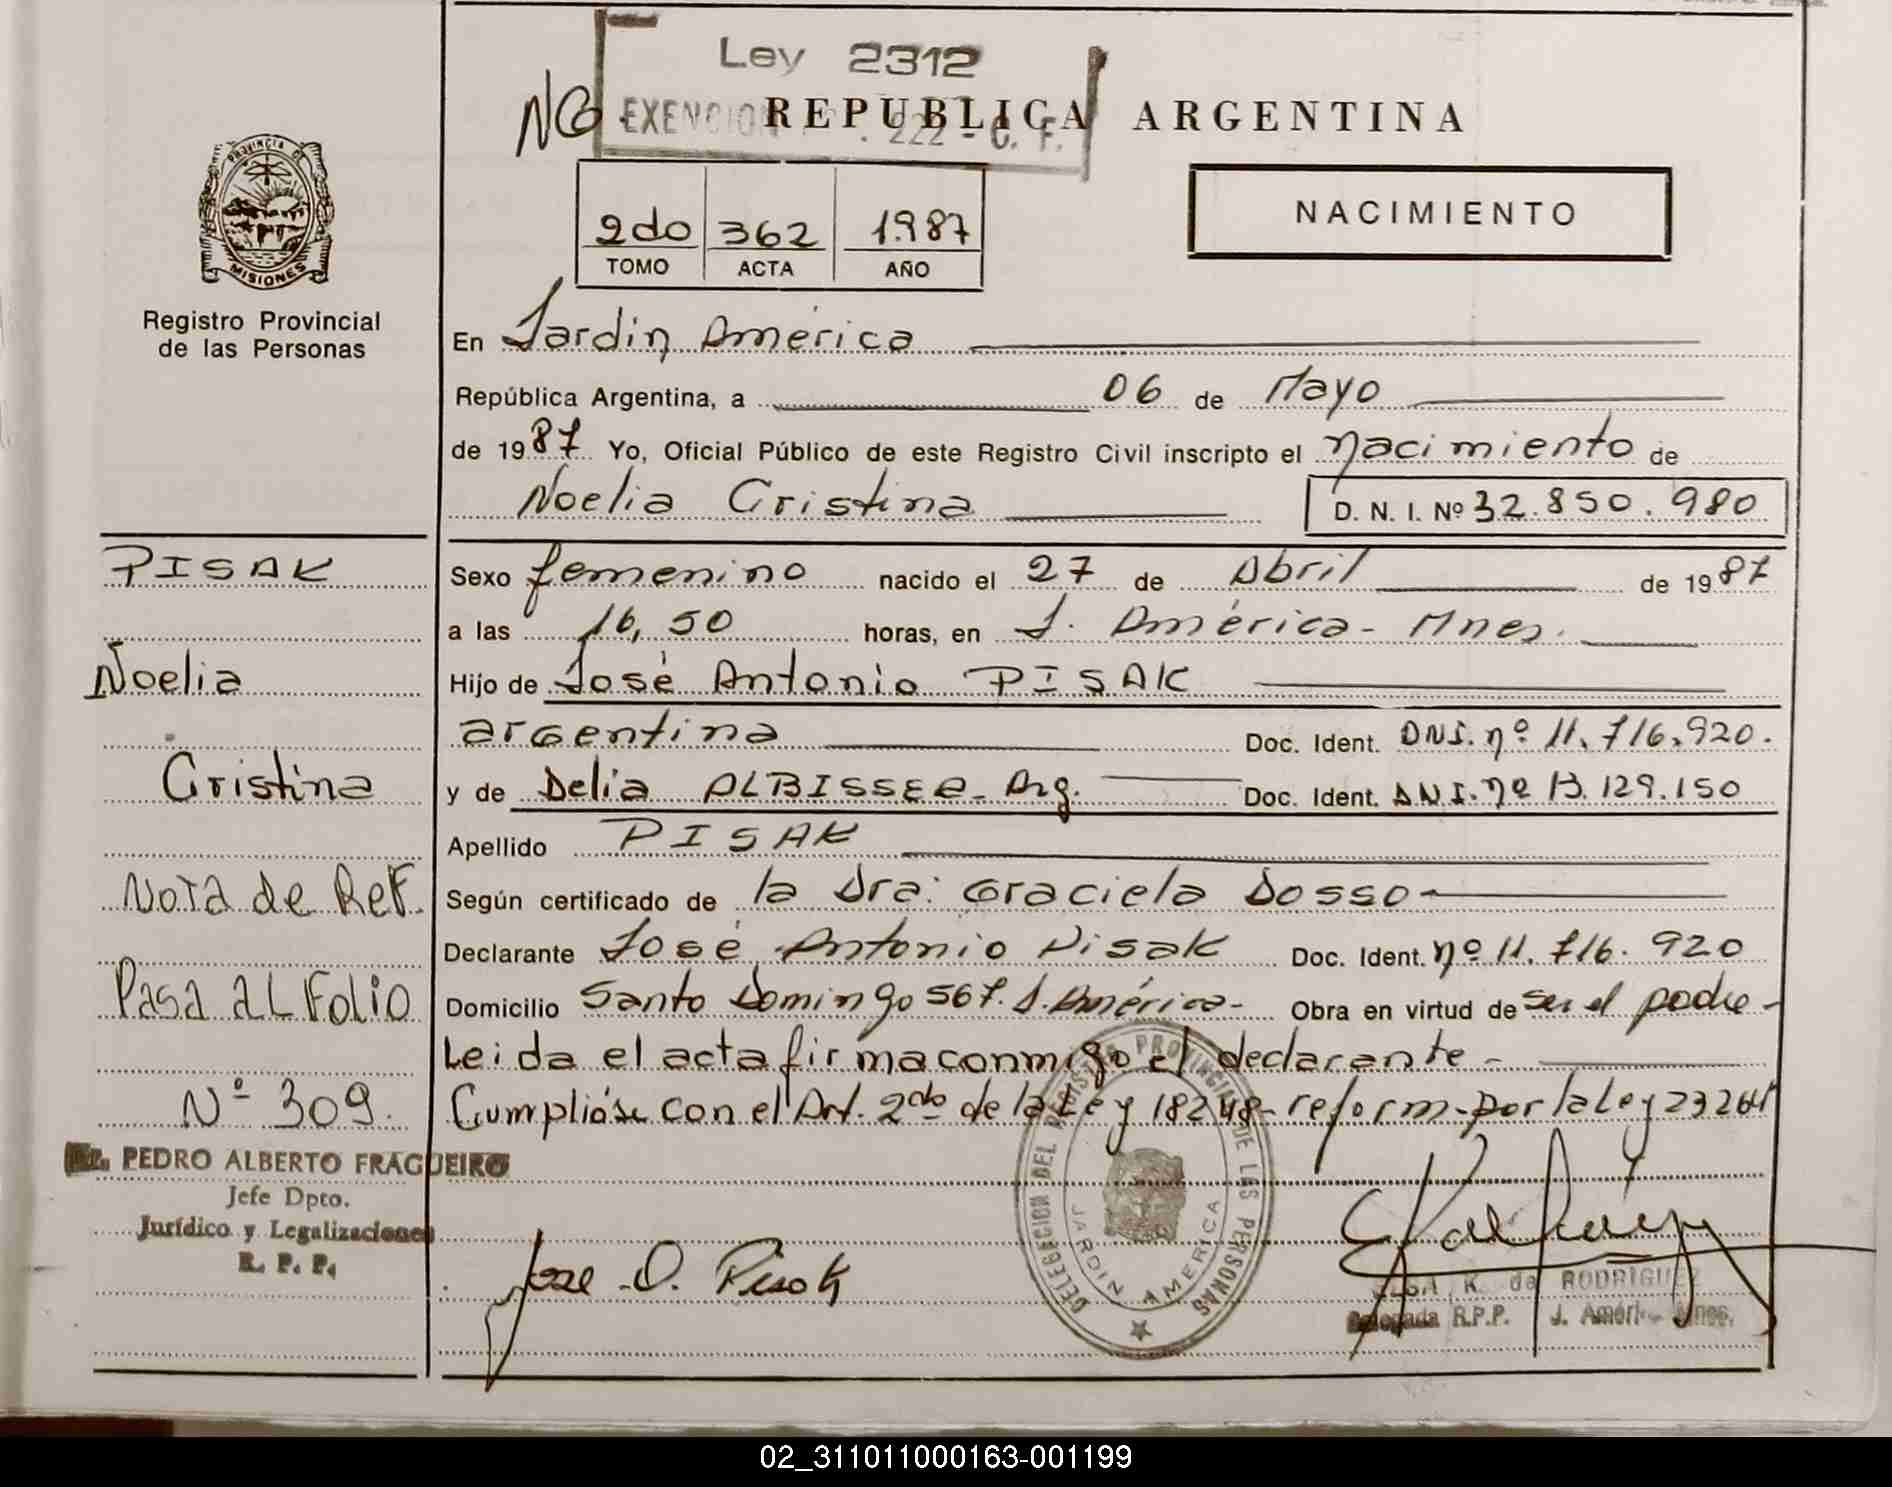 Ley 2312
No EXENCION REPUBLICA ARGENTINA
222 - C. F.
NACIMIENTO
2do 362 1.987
TOMO ACTA AÑO
PROVINCIA DE
MISIONES
Registro Provincial
de las Personas
En Jardin América
República Argentina, a 06 de Mayo
de 1987 Yo, Oficial Público de este Registro Civil inscripto el nacimiento de
Noelia Cristina D. N. I. Nº 32.850.980
PISAK
Noelia
Cristina
Nota de Ref.
Pasa al Folio
Nº 309.
PEDRO ALBERTO FRAGUEIRO
Jefe Dpto.
Jurídico y Legalizaciones
R. P. P.
Sexo femenino nacido el 27 de Abril de 1987
a las 16,50 horas, en J. América - Mnes.
Hijo de José Antonio PISAK
argentina Doc. Ident. DNI. nº 11.716.920.
y de Delia ALBISSER - Arg. Doc. Ident. DNI. nº 13.129.150
Apellido PISAK
Según certificado de la Dra: Graciela Dosso
Declarante José Antonio Pisak Doc. Ident. nº 11.716.920
Domicilio Santo Domingo 567. J. América - Obra en virtud de ser el padre -
Leida el acta firma conmigo el declarante -
Cumplióse con el Art. 2do de la Ley 18248 - reform. por la Ley 23264
DELEGACION DEL REGISTRO PROVINCIAL DE LAS PERSONAS
JARDIN AMERICA
Jose A. Pisak
ELSA K. de RODRIGUEZ
Delegada R.P.P. J. Améri Mnes.
02_311011000163-001199